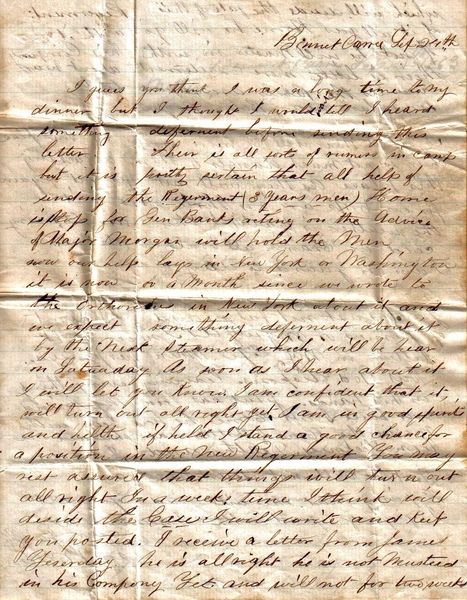 Bennet Carra Sep 24th
I guess you think I was a long time to my
dinner but I thought I would till I heard
something deferment before sending this
letter Their is all sorts of rumers in camp
but it is pritty sertain that all help of
sending the Regerment (3 years men) Home
is stop for Gen Banks acting on the Advice
of Major Morgan will hold the Men
now our help lays in New York or Washington
it is now over a Month since we wrote to
the in New York about it and
we expect something deferment about it
by the Next Steamer which will be hear
on Saturday As soon as I hear about it
I will let you know I am confident that it
will turn out all right yet. I am in good spirits
and helth if held I stand a good chance for
a position in the New Regerment You may
rest assured that things will turn out
all right In a weeks time I think will
deside the Case I will write and keep
you posted. I receive a letter from James
Yesterday he is all right he is not Musterd
in his Company Yet and will not for two weeks